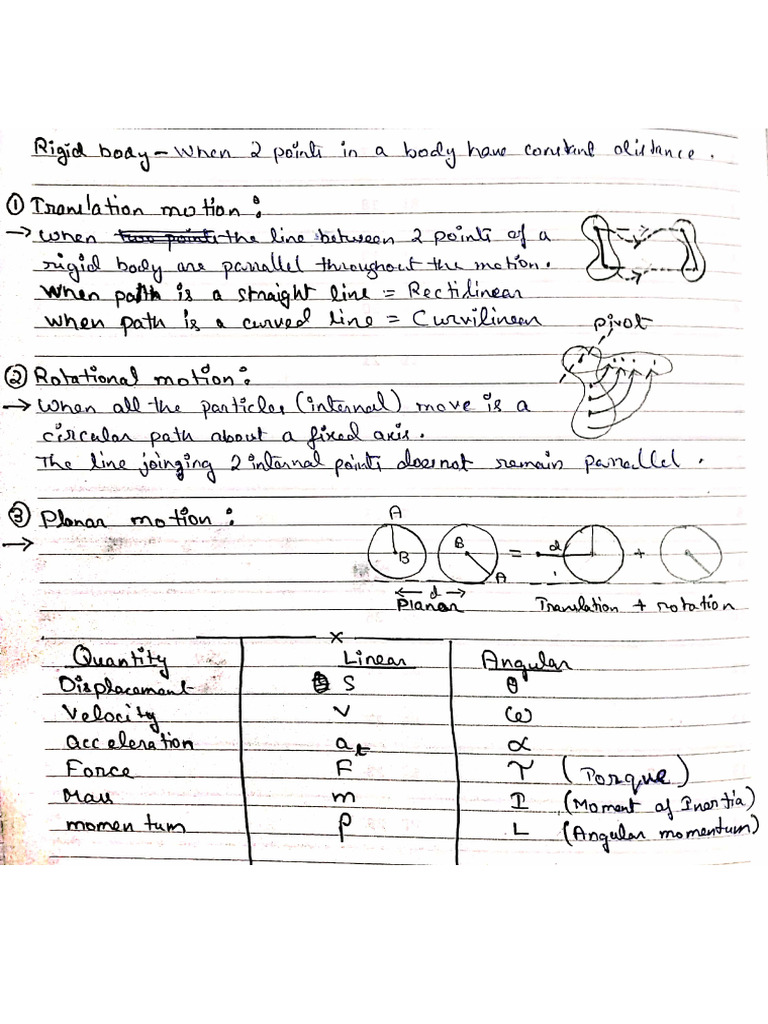 Rigid body – When 2 points in a body have constant distance.
① Translation motion :
→ When the line between 2 points of a
rigid body are parrallel throughout the motion.
When path is a straight line = Rectilinear
When path is a curved line = Curvilinear
pivot
② Rotational motion :
→ When all the particles (internal) move is a
circular path about a fixed axis.
The line joinging 2 internal points does not remain parrallel.
③ Planar motion :
→
A
B
B
A
d
Planar
=
d
+
Translation + rotation
x
Quantity Linear Angular
Displacement S θ
Velocity v ω
acceleration at α
Force F τ (Torque)
Mass m I (Moment of Inertia)
momentum p L (Angular momentum)